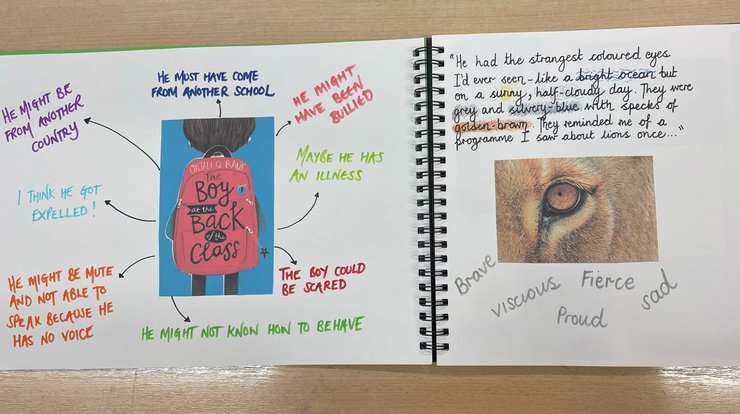 HE MIGHT BE
FROM ANOTHER
COUNTRY
HE MUST HAVE COME
FROM ANOTHER SCHOOL
HE MIGHT
HAVE BEEN
BULLIED
MAYBE HE HAS
AN ILLNESS
I THINK HE GOT
EXPELLED!
ONJALI Q. RAÚF
The
Boy
at the
Back
of the
Class
HE MIGHT BE MUTE
AND NOT ABLE TO
SPEAK BECAUSE HE
HAS NO VOICE
THE BOY COULD
BE SCARED
HE MIGHT NOT KNOW HOW TO BEHAVE
"He had the strangest coloured eyes
I'd ever seen-like a bright ocean but
on a sunny, half-cloudy day. They were
grey and silvery-blue with specks of
golden-brown. They reminded me of a
programme I saw about lions once..."
Brave
viscious
Fierce
Proud
sad